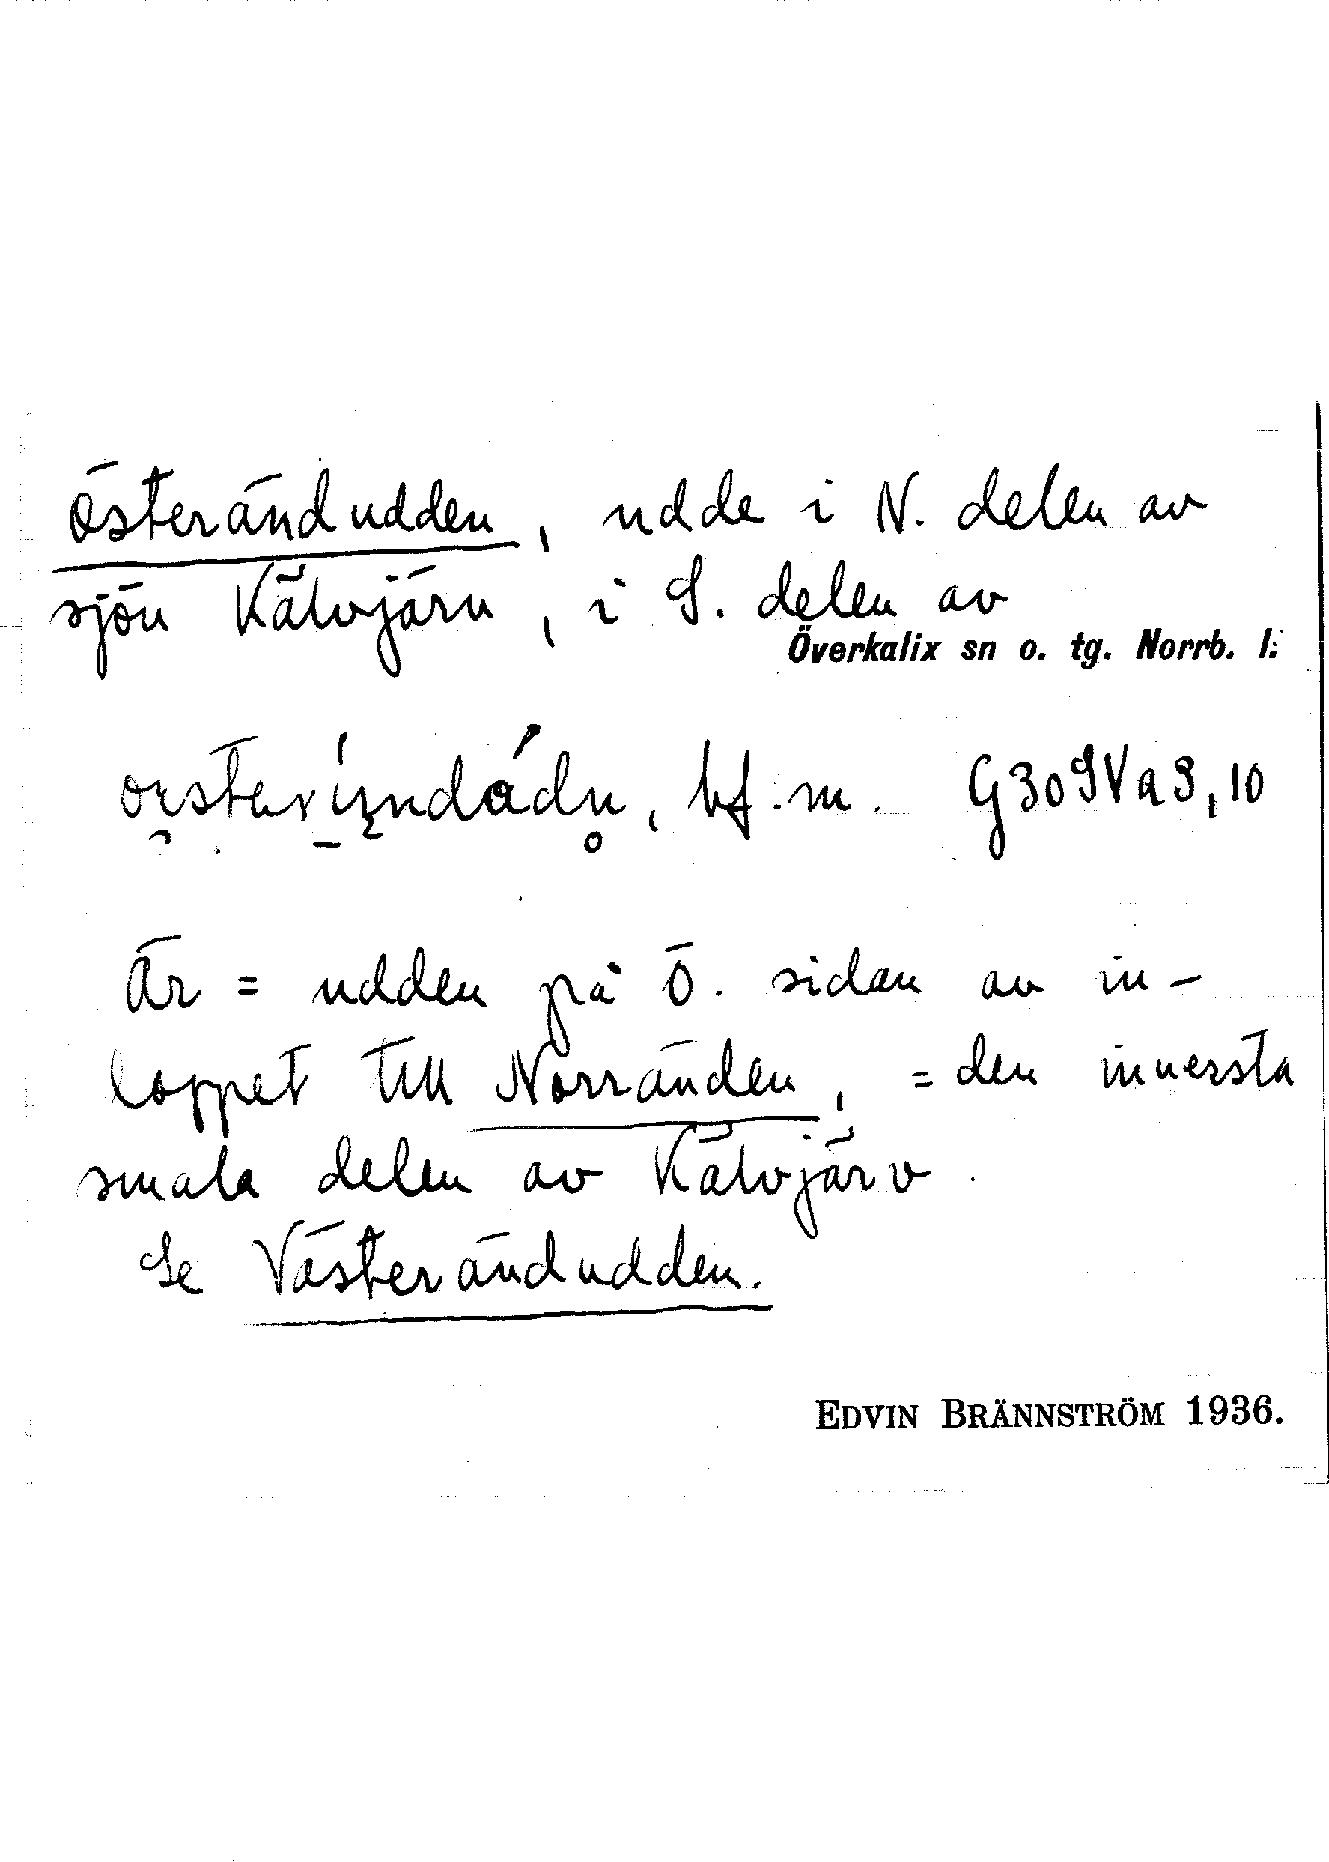 Österändudden, udde i N. delen av
sjön Kälvjärv, i S. delen av
Överkalix sn o. tg. Norrb. l.
bf. m. G30SVa8, 10
Är = udden på Ö. sidan av in-
loppet till Norränden, = den innersta
smala delen av Kälvjärv.
Se Västerändudden.
EDVIN BRÄNNSTRÖM 1936.